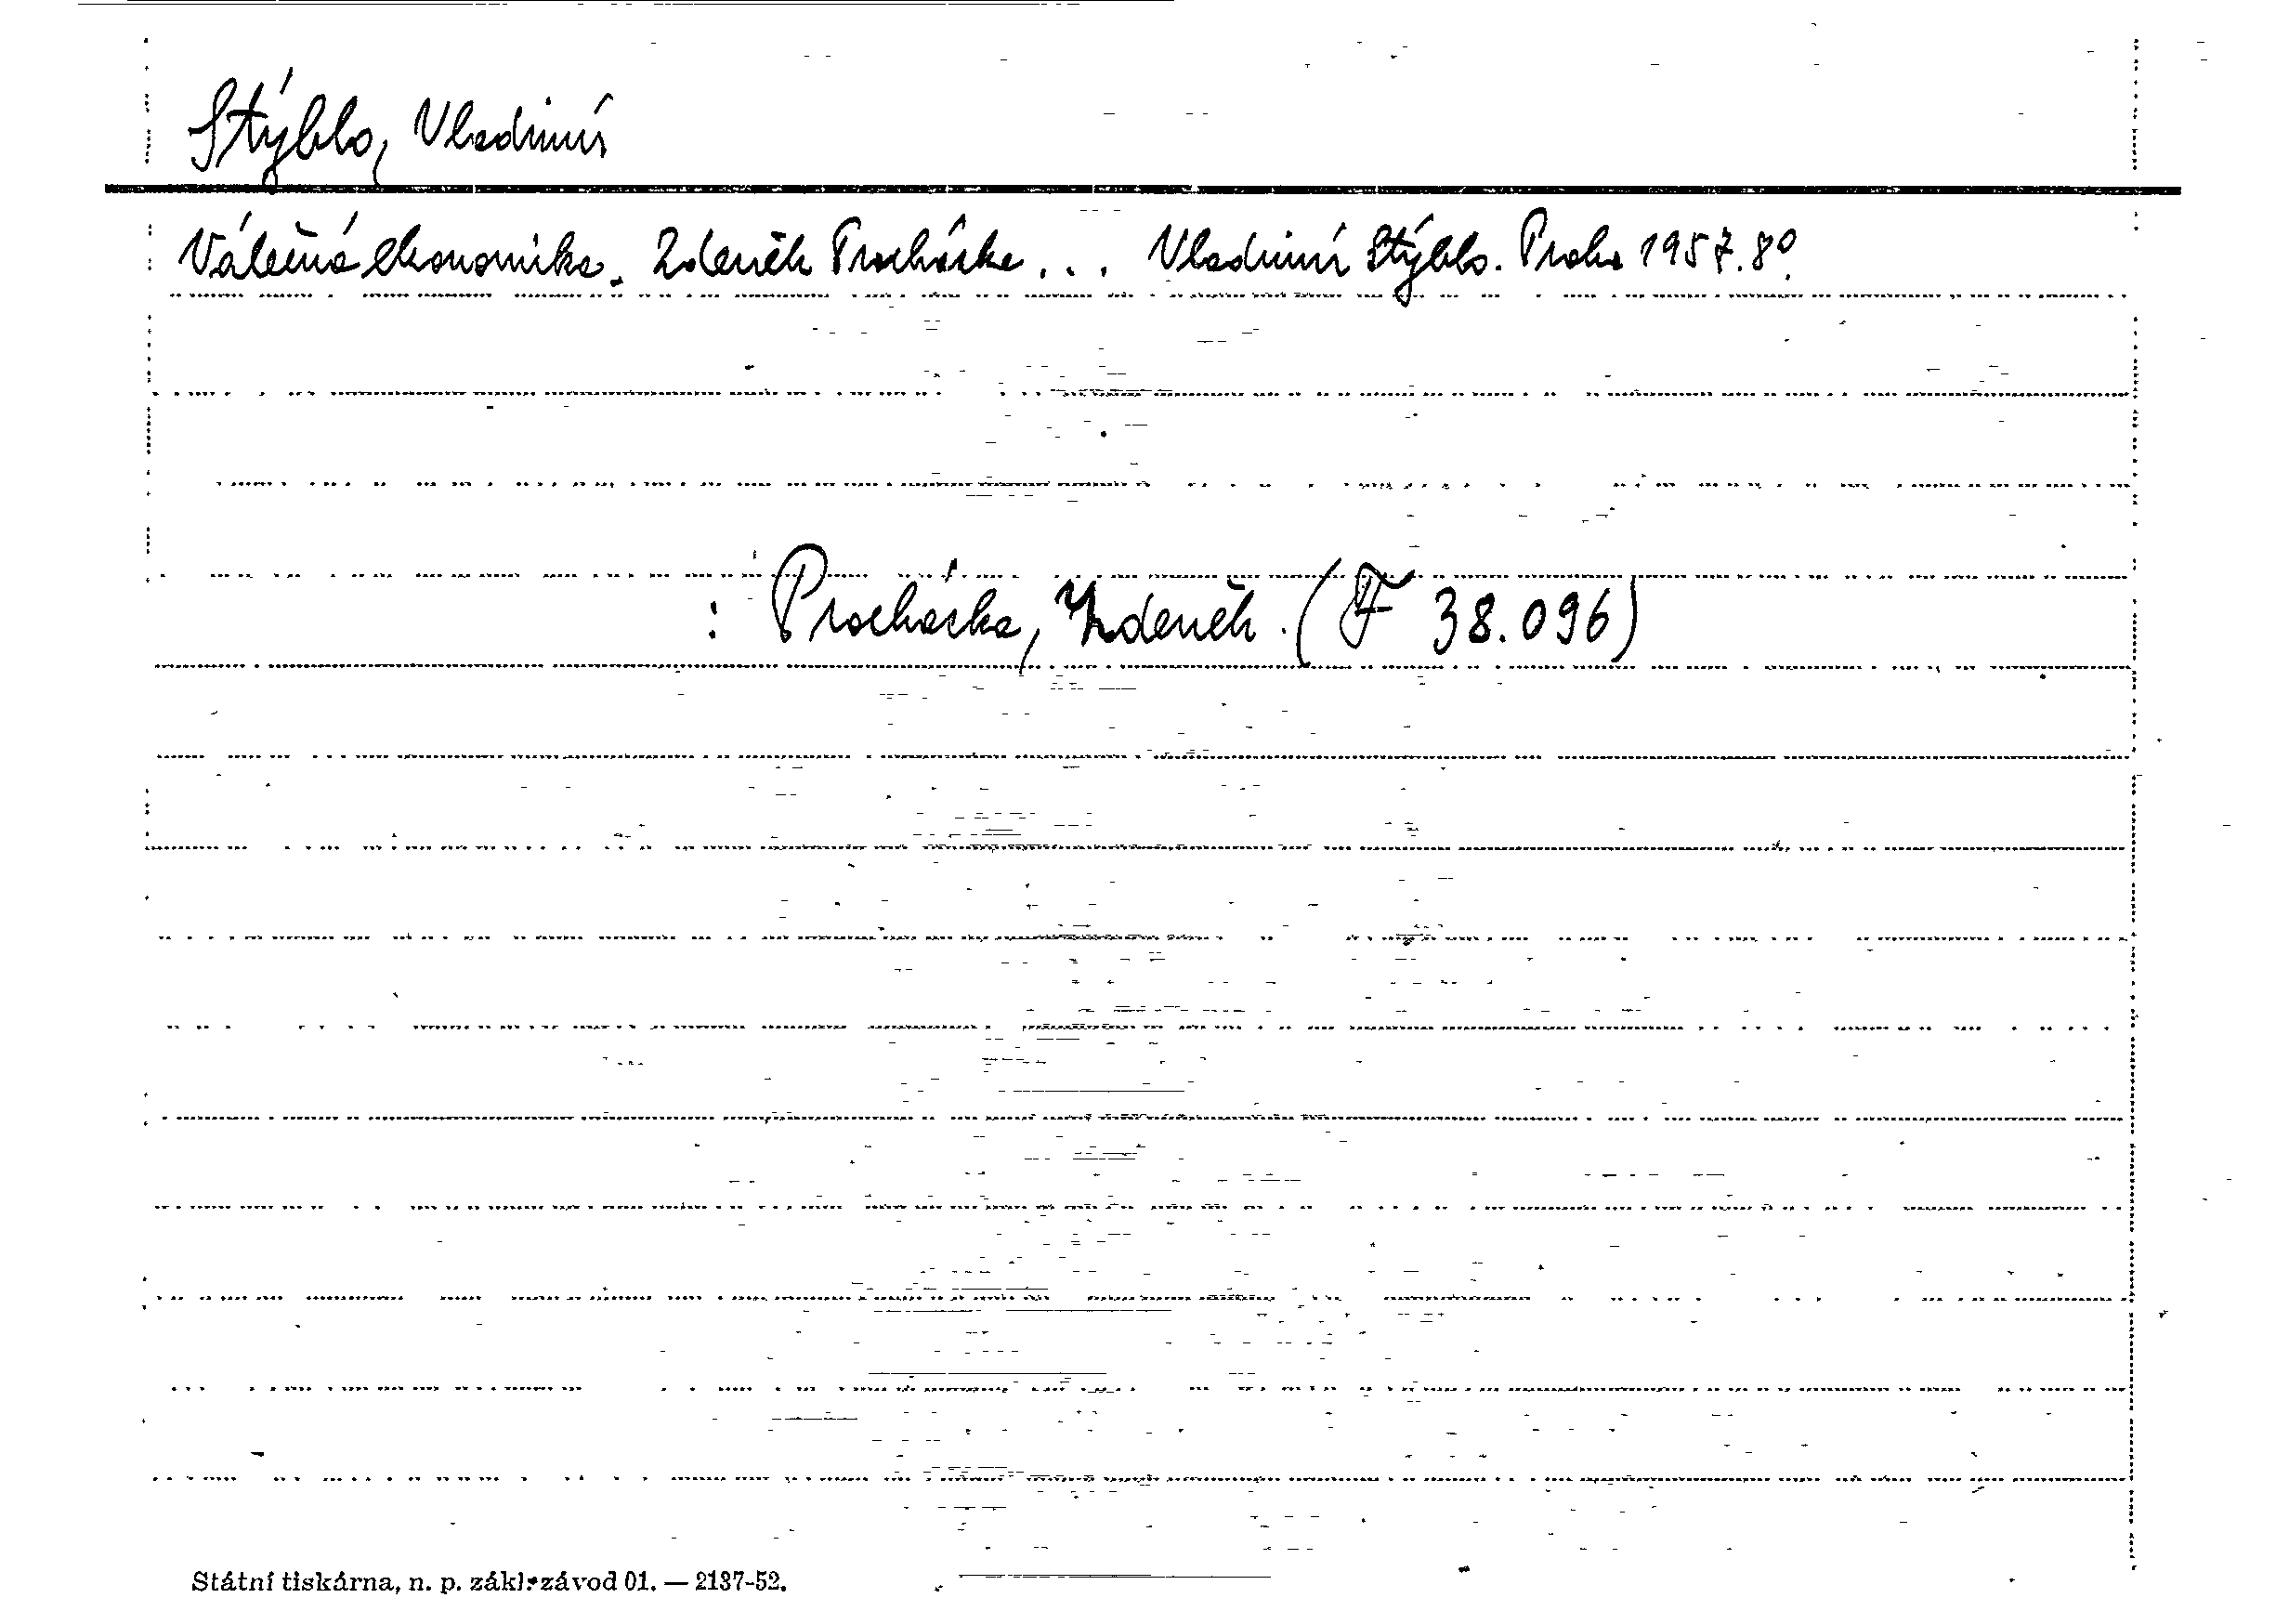 Stýblo, Vladimír
Válečná ekonomika. Zdeněk Procházka... Vladimír Stýblo. Praha 1957. 8°.
: Procházka, Zdeněk. (F 38.096)
Státní tiskárna, n. p. zákl. závod 01. — 2137-52.